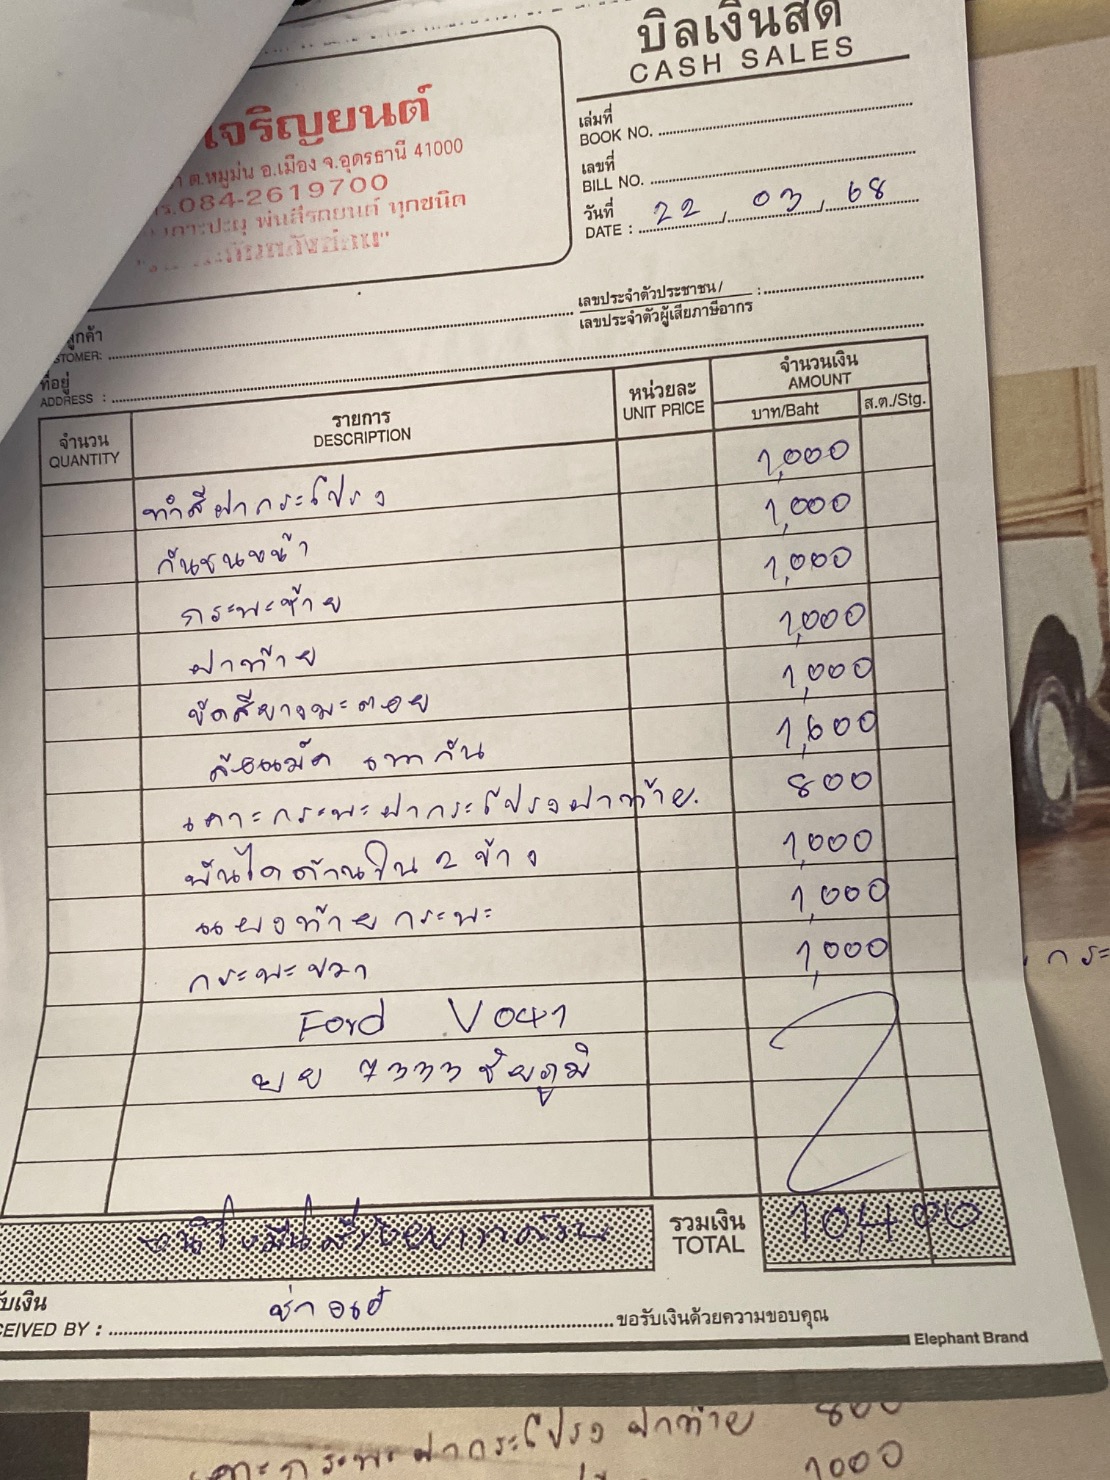 บิลเงินสด
CASH SALES
เจริญยนต์
ต.หมูม่น อ.เมือง จ.อุดรธานี 41000
084-2619700
เคาะปะผุ พ่นสีรถยนต์ ทุกชนิด
เล่มที่
BOOK NO.
เลขที่
BILL NO.
วันที่
DATE : 22 / 03 / 68
ลูกค้า
เลขประจำตัวประชาชน/
เลขประจำตัวผู้เสียภาษีอากร
ที่อยู่
ADDRESS :
จำนวน
QUANTITY
รายการ
DESCRIPTION
หน่วยละ
UNIT PRICE
จำนวนเงิน
AMOUNT
บาท/Baht
ส.ต./Stg.
ทำสีฝากระโปรง 1,000
กันชนหน้า 1,000
กระบะซ้าย 1,000
ฝาท้าย 1,000
ขัดสียางมะตอย 1,000
1,600
เคาะกระบะฝากระโปรงฝาท้าย. 800
ด้านใน 2 ข้าง 1,000
ท้ายกระบะ 1,000
กระบะขวา 1,000
Ford V041
ผย 7333 ชัยภูมิ
หนึ่งหมื่นสี่ร้อยบาทถ้วน
รวมเงิน
TOTAL
10,400
รับเงิน
CEIVED BY :
ช่าง
ขอรับเงินด้วยความขอบคุณ
Elephant Brand
เคาะกระบะฝากระโปรงฝาท้าย 800
1000